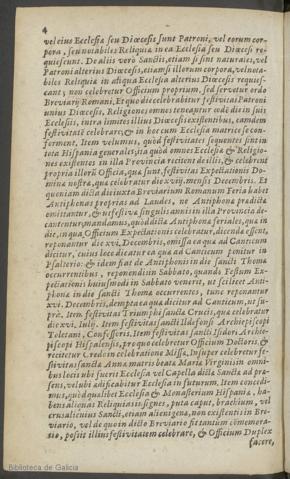 4
vel eius Ecclesia seu Diœcesis sunt Patroni, vel eorum cor-
pora, seu notabiles Reliquiæ in ea Ecclesia seu Diœcesi re-
quiescunt. De aliis verò Sanctis, etiam si sint naturales, vel
Patroni alterius Diœcesis, etiamsi illorum corpora, vel nota-
biles Reliquiæ in aliqua Ecclesia alterius Diœcesis requies-
cant; non celebretur Officium proprium, sed servetur ordo
Breviarij Romani. Et quo die celebrabitur festivitas Patroni
unius Diœcesis, Religiones omnes teneantur eadē die in suis
Ecclesiis, intra limites illius Diœcesis existentibus, eamdem
festivitatē celebrare, & in hoc cum Ecclesia matrice se con-
forment. Item volumus, quòd festivitates sequentes sint in
tota Hispania generales, ita quòd omnes Ecclesiæ & Religio-
nes existentes in illa Provincia recitent de illis, & celebrent
propria illorū Officia, quæ sunt, festivitas Expectationis Do-
minæ nostræ, quæ celebratur die xviij. mensis Decembris. Et
quoniam dicta die iuxta Breviarium Romanum Feria habet
Antiphonas proprias ad Laudes, ne Antiphonæ prædictæ
omittantur, & ut festivæ singulis annis in illa Provincia de-
cantentur, mandamus, quòd dictæ Antiphonæ feriales, quæ in
die, in qua Officium Expectationis celebratur, dicendæ essent,
reponantur die xvi. Decembris, omissa ea quæ ad Canticum
dicitur, cuius loco dicatur ea quæ ad Canticum ponitur in
Psalterio: & idem fiat de Antiphonis in die sancti Thomæ
occurrentibus, reponendis in Sabbato, quando Festum Ex-
pectationis huiusmodi in Sabbato venerit, ut scilicet Anti-
phonæ in die sancti Thomæ occurrentes, tunc reponantur
xvi. Decembris, dempta ea quæ dicitur ad Canticum, ut su-
prà. Item festivitas Triumphi sanctæ Crucis, quæ celebratur
die xvi. Iulij. Item festivitas sancti Ildefonsi Archiepiscopi
Toletani, Confessoris. Item festivitas sancti Isidori Archie-
piscopi Hispalensis, pro quo celebretur Officium Doctoris, &
recitetur Credo in celebratione Missæ. Insuper celebretur fe-
stivitas sanctæ Annæ matris beatæ Mariæ Virginis in omni-
bus locis ubi fuerit Ecclesia vel Capella dictæ Sanctæ ad præ-
sens, vel ubi ædificabitur Ecclesia in futurum. Item concedi-
mus, quòd qualibet Ecclesia & Monasterium Hispaniæ, ha-
bens aliquas Reliquias insignes, puta caput, brachium, vel
crus alicuius Sancti, etiam alienigenæ, non existentis in Bre-
viario, vel de quo in dicto Breviario fit tantùm cōmemora-
tio, possit illius festivitatem celebrare, & Officium Duplex
facere,
Biblioteca de Galicia